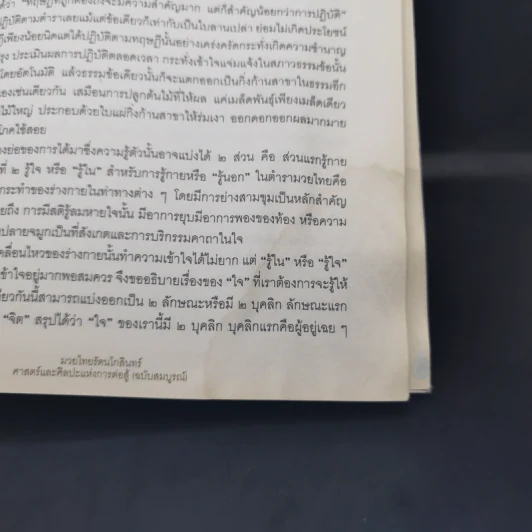 ได้ว่า “ทฤษฎีที่ถูกต้องถึงจะมีความสำคัญมาก แต่ก็สำคัญน้อยกว่าการปฏิบัติ”
ปฏิบัติตามตำราเลยแม้แต่ข้อเดียวก็เท่ากับเป็นใบลานเปล่า ย่อมไม่เกิดประโยชน์
ก็เพียงน้อยนิดแต่ได้ปฏิบัติตามทฤษฎีนั้นอย่างเคร่งครัดกระทั่งเกิดความชำนาญ
ประเมินผลการปฏิบัติตลอดเวลา กระทั่งเข้าใจแจ่มแจ้งในสภาวธรรมข้อนั้น
โดยอัตโนมัติ แล้วธรรมข้อเดียวนั้นก็จะแตกออกเป็นกิ่งก้านสาขาในธรรมอีก
เองเช่นเดียวกัน เสมือนการปลูกต้นไม้ที่ให้ผล แค่เมล็ดพันธุ์เพียงเมล็ดเดียว
ไม้ใหญ่ ประกอบด้วยใบแผ่กิ่งก้านสาขาให้ร่มเงา ออกดอกออกผลมากมาย
โภคใช้สอย
ย่อของการได้มาซึ่งความรู้ตัวนั้นอาจแบ่งได้ ๒ ส่วน คือ ส่วนแรกรู้กาย
ที่ ๒ รู้ใจ หรือ “รู้ใน” สำหรับการรู้กายหรือ “รู้นอก” ในตำรามวยไทยคือ
กระทำของร่างกายในท่าทางต่าง ๆ โดยมีการย่างสามขุมเป็นหลักสำคัญ
ถึง การมีสติรู้ลมหายใจนั้น มีอาการยุบมีอาการพองของท้อง หรือความ
ปลายจมูกเป็นที่สังเกตและการบริกรรมคาถาในใจ
คลื่อนไหวของร่างกายนั้นทำความเข้าใจได้ไม่ยาก แต่ “รู้ใน” หรือ “รู้ใจ”
เข้าใจอยู่มากพอสมควร จึงขออธิบายเรื่องของ “ใจ” ที่เราต้องการจะรู้ให้
ดียวกันนี้สามารถแบ่งออกเป็น ๒ ลักษณะหรือมี ๒ บุคลิก ลักษณะแรก
“จิต” สรุปได้ว่า “ใจ” ของเรานี้มี ๒ บุคลิก บุคลิกแรกคือผู้อยู่เฉย ๆ
มวยไทยรัตนโกสินทร์
ศาสตร์และศิลปะแห่งการต่อสู้ (ฉบับสมบูรณ์)